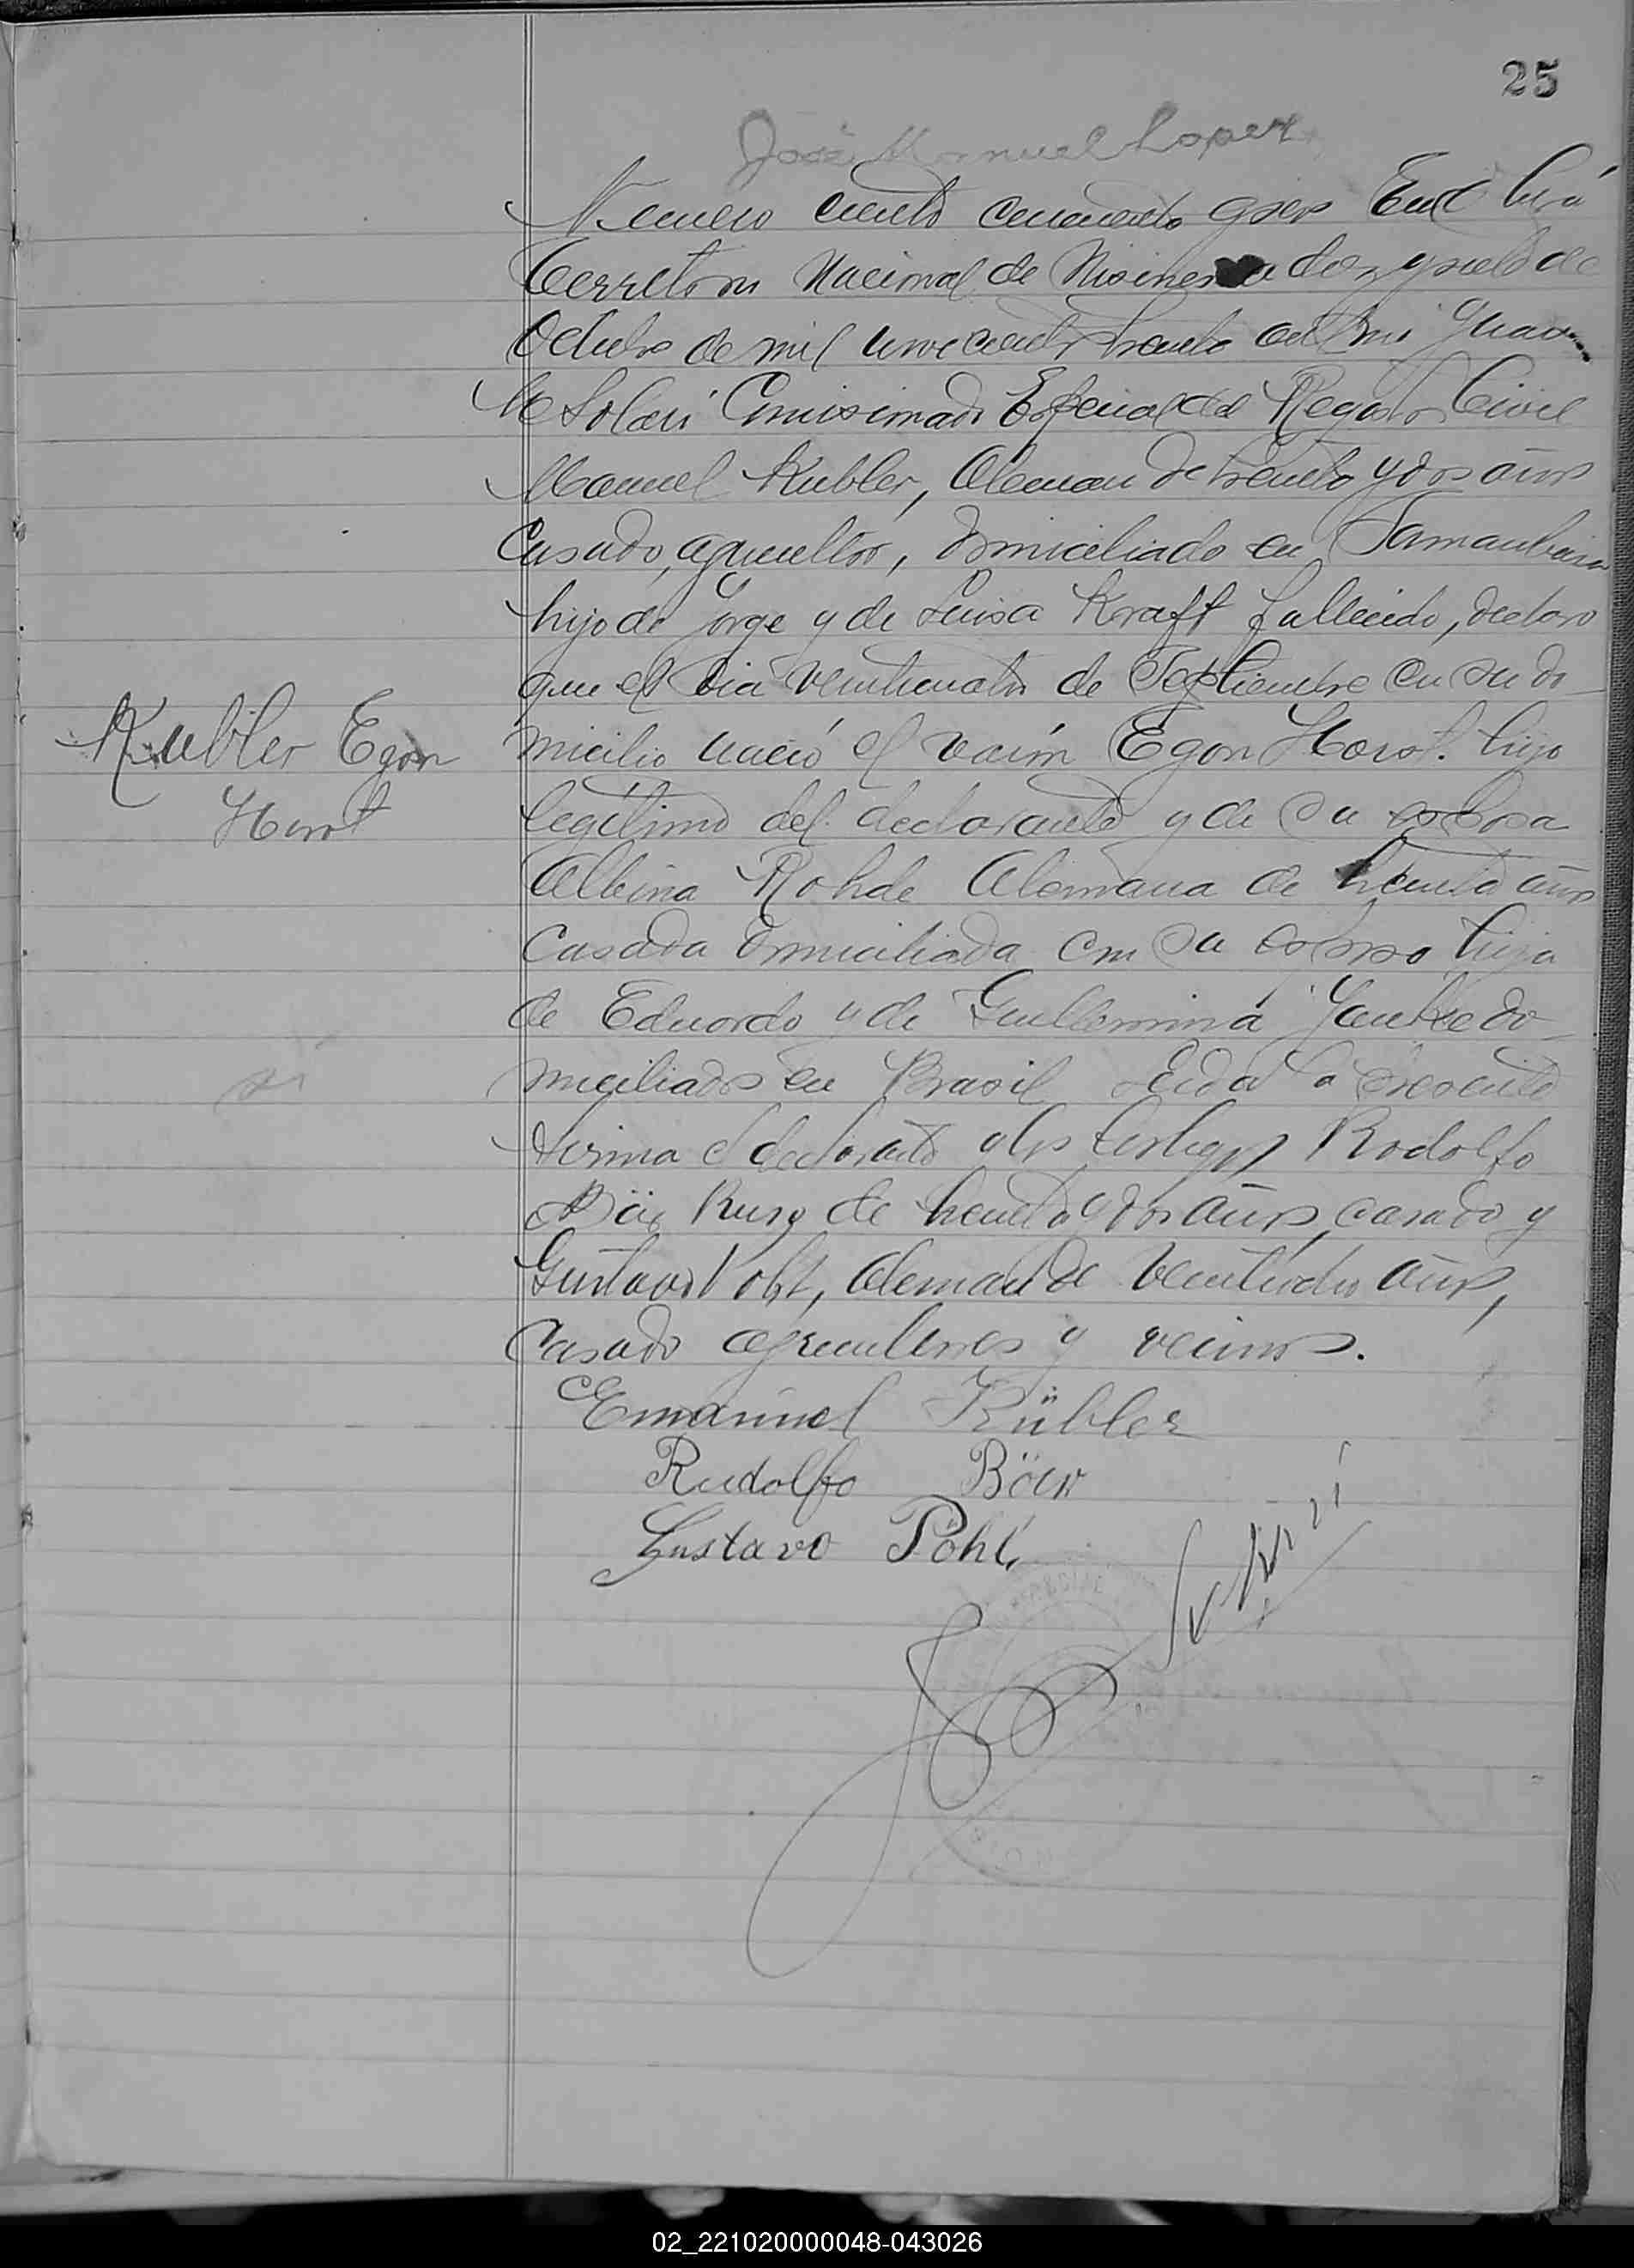 25
José Manuel Lopez
Numero ciento cincuenta y seis En el
Territorio Nacional de Misiones a diez y siete de
Octubre de mil novecientos treinta ante mi Juan
M Solari Comisionado Especial del Registro Civil
Manuel Kubler, Aleman de treinta y dos años
Casado, agricultor, domiciliado en
hijo de Jorge y de Luisa Kraft fallecido, declaro
que el dia veinticuatro de Septiembre en su do
micilio nació el varón Egon Horst. hijo
Kubler Egon
Horst
legítimo del declarante y de su esposa
Albina Rohde Alemana de treinta años
Casada domiciliada con su esposo hija
de Eduardo y de Guillermina Jankedo
miciliados en Brasil Leida la presente
firma el declarante y los testigos Rodolfo
Ruso de treinta y dos años, casado y
Gustavo Aleman de años,
Casado agricultores y vecinos.
Emanuel Kübler
Rudolfo
Gustavo Pöhl
02_221020000048-043026